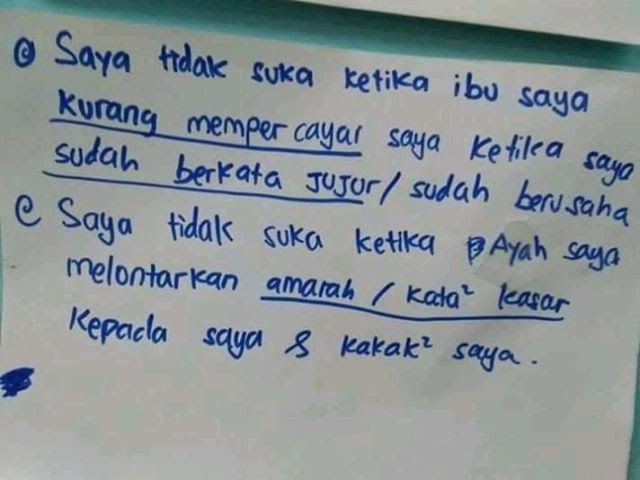 @ Saya tidak suka ketika ibu saya
kurang mempercayai saya ketika saya
sudah berkata jujur / sudah berusaha
@ Saya tidak suka ketika Ayah saya
melontarkan amarah / kata² kasar
kepada saya & kakak² saya.